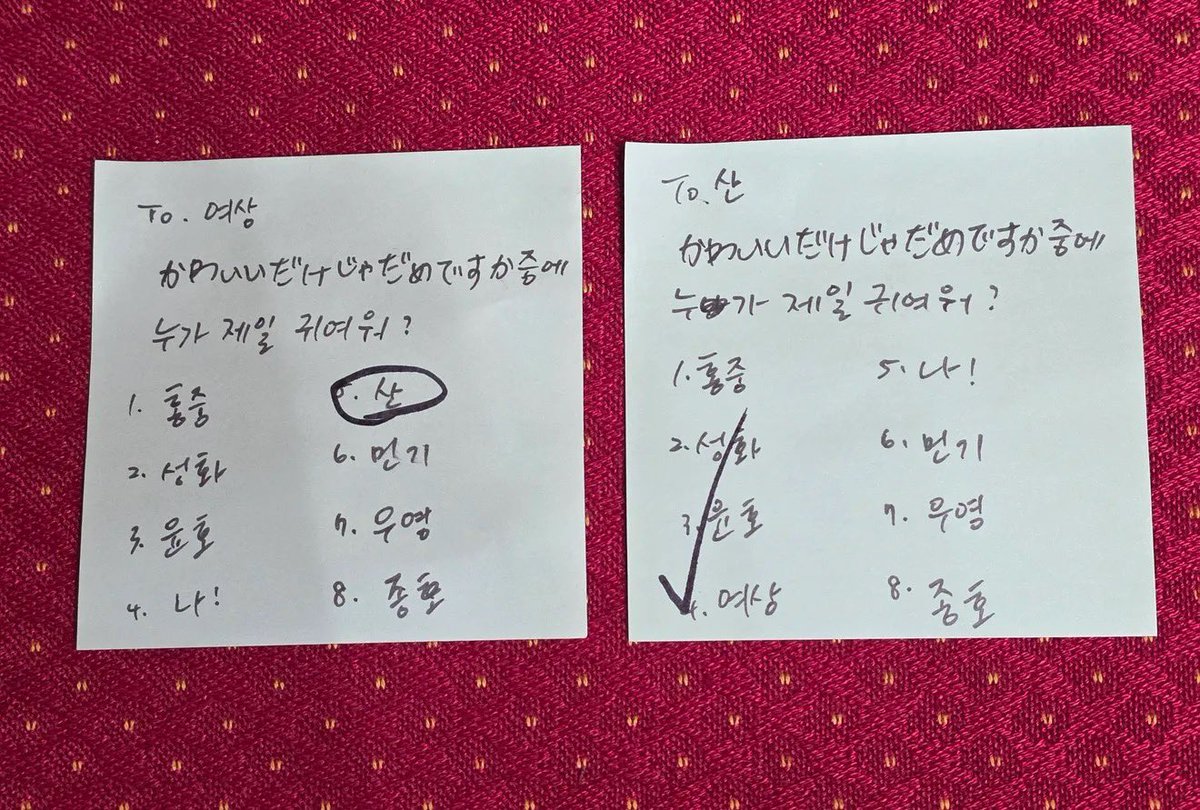 To. 여상
かわいいだけじゃだめですか중에
누가 제일 귀여워?
1. 홍중
2. 성화
3. 윤호
4. 나!
5. 산
6. 민기
7. 우영
8. 종호
To. 산
かわいいだけじゃだめですか중에
누가 제일 귀여워?
1. 홍중
2. 성화
3. 윤호
4. 여상
5. 나!
6. 민기
7. 우영
8. 종호